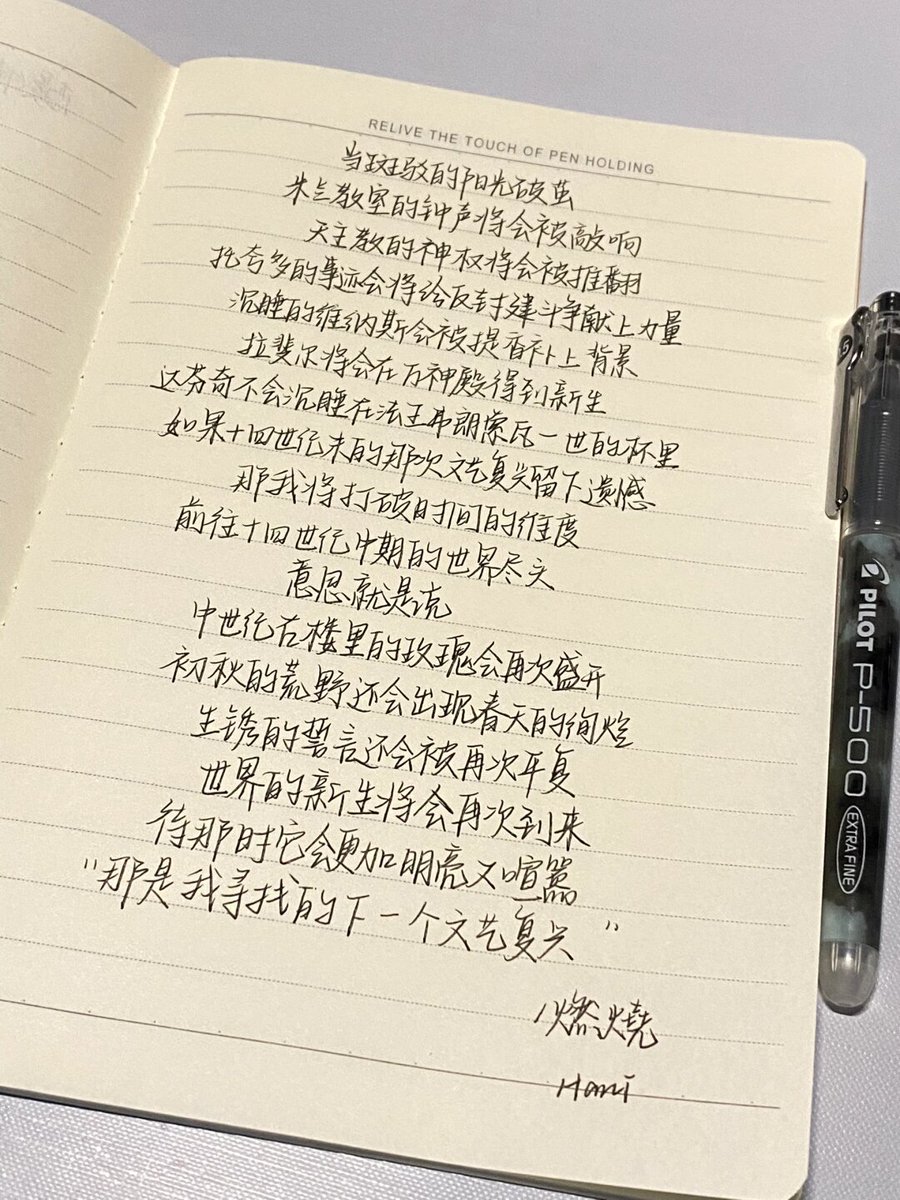 RELIVE THE TOUCH OF PEN HOLDING
当斑驳的阳光破茧
米兰教室的钟声将会被敲响
天主教的神权将会被推翻
托夸多的事迹会将给反封建斗争献上力量
沉睡的维纳斯会被提香补上背景
拉斐尔将会在万神殿得到新生
达芬奇不会沉睡在法王弗朗索瓦一世的怀里
如果十四世纪末的那次文艺复兴留下遗憾
那我将打破时间的维度
前往十四世纪中期的世界尽头
意思就是说
中世纪古楼里的玫瑰会再次盛开
初秋的荒野还会出现春天的绚烂
生锈的誓言还会被再次平复
世界的新生将会再次到来
待那时它会更加明亮又喧嚣
"那是我寻找的下一个文艺复兴"
燃燒
PILOT P-500 EXTRA FINE